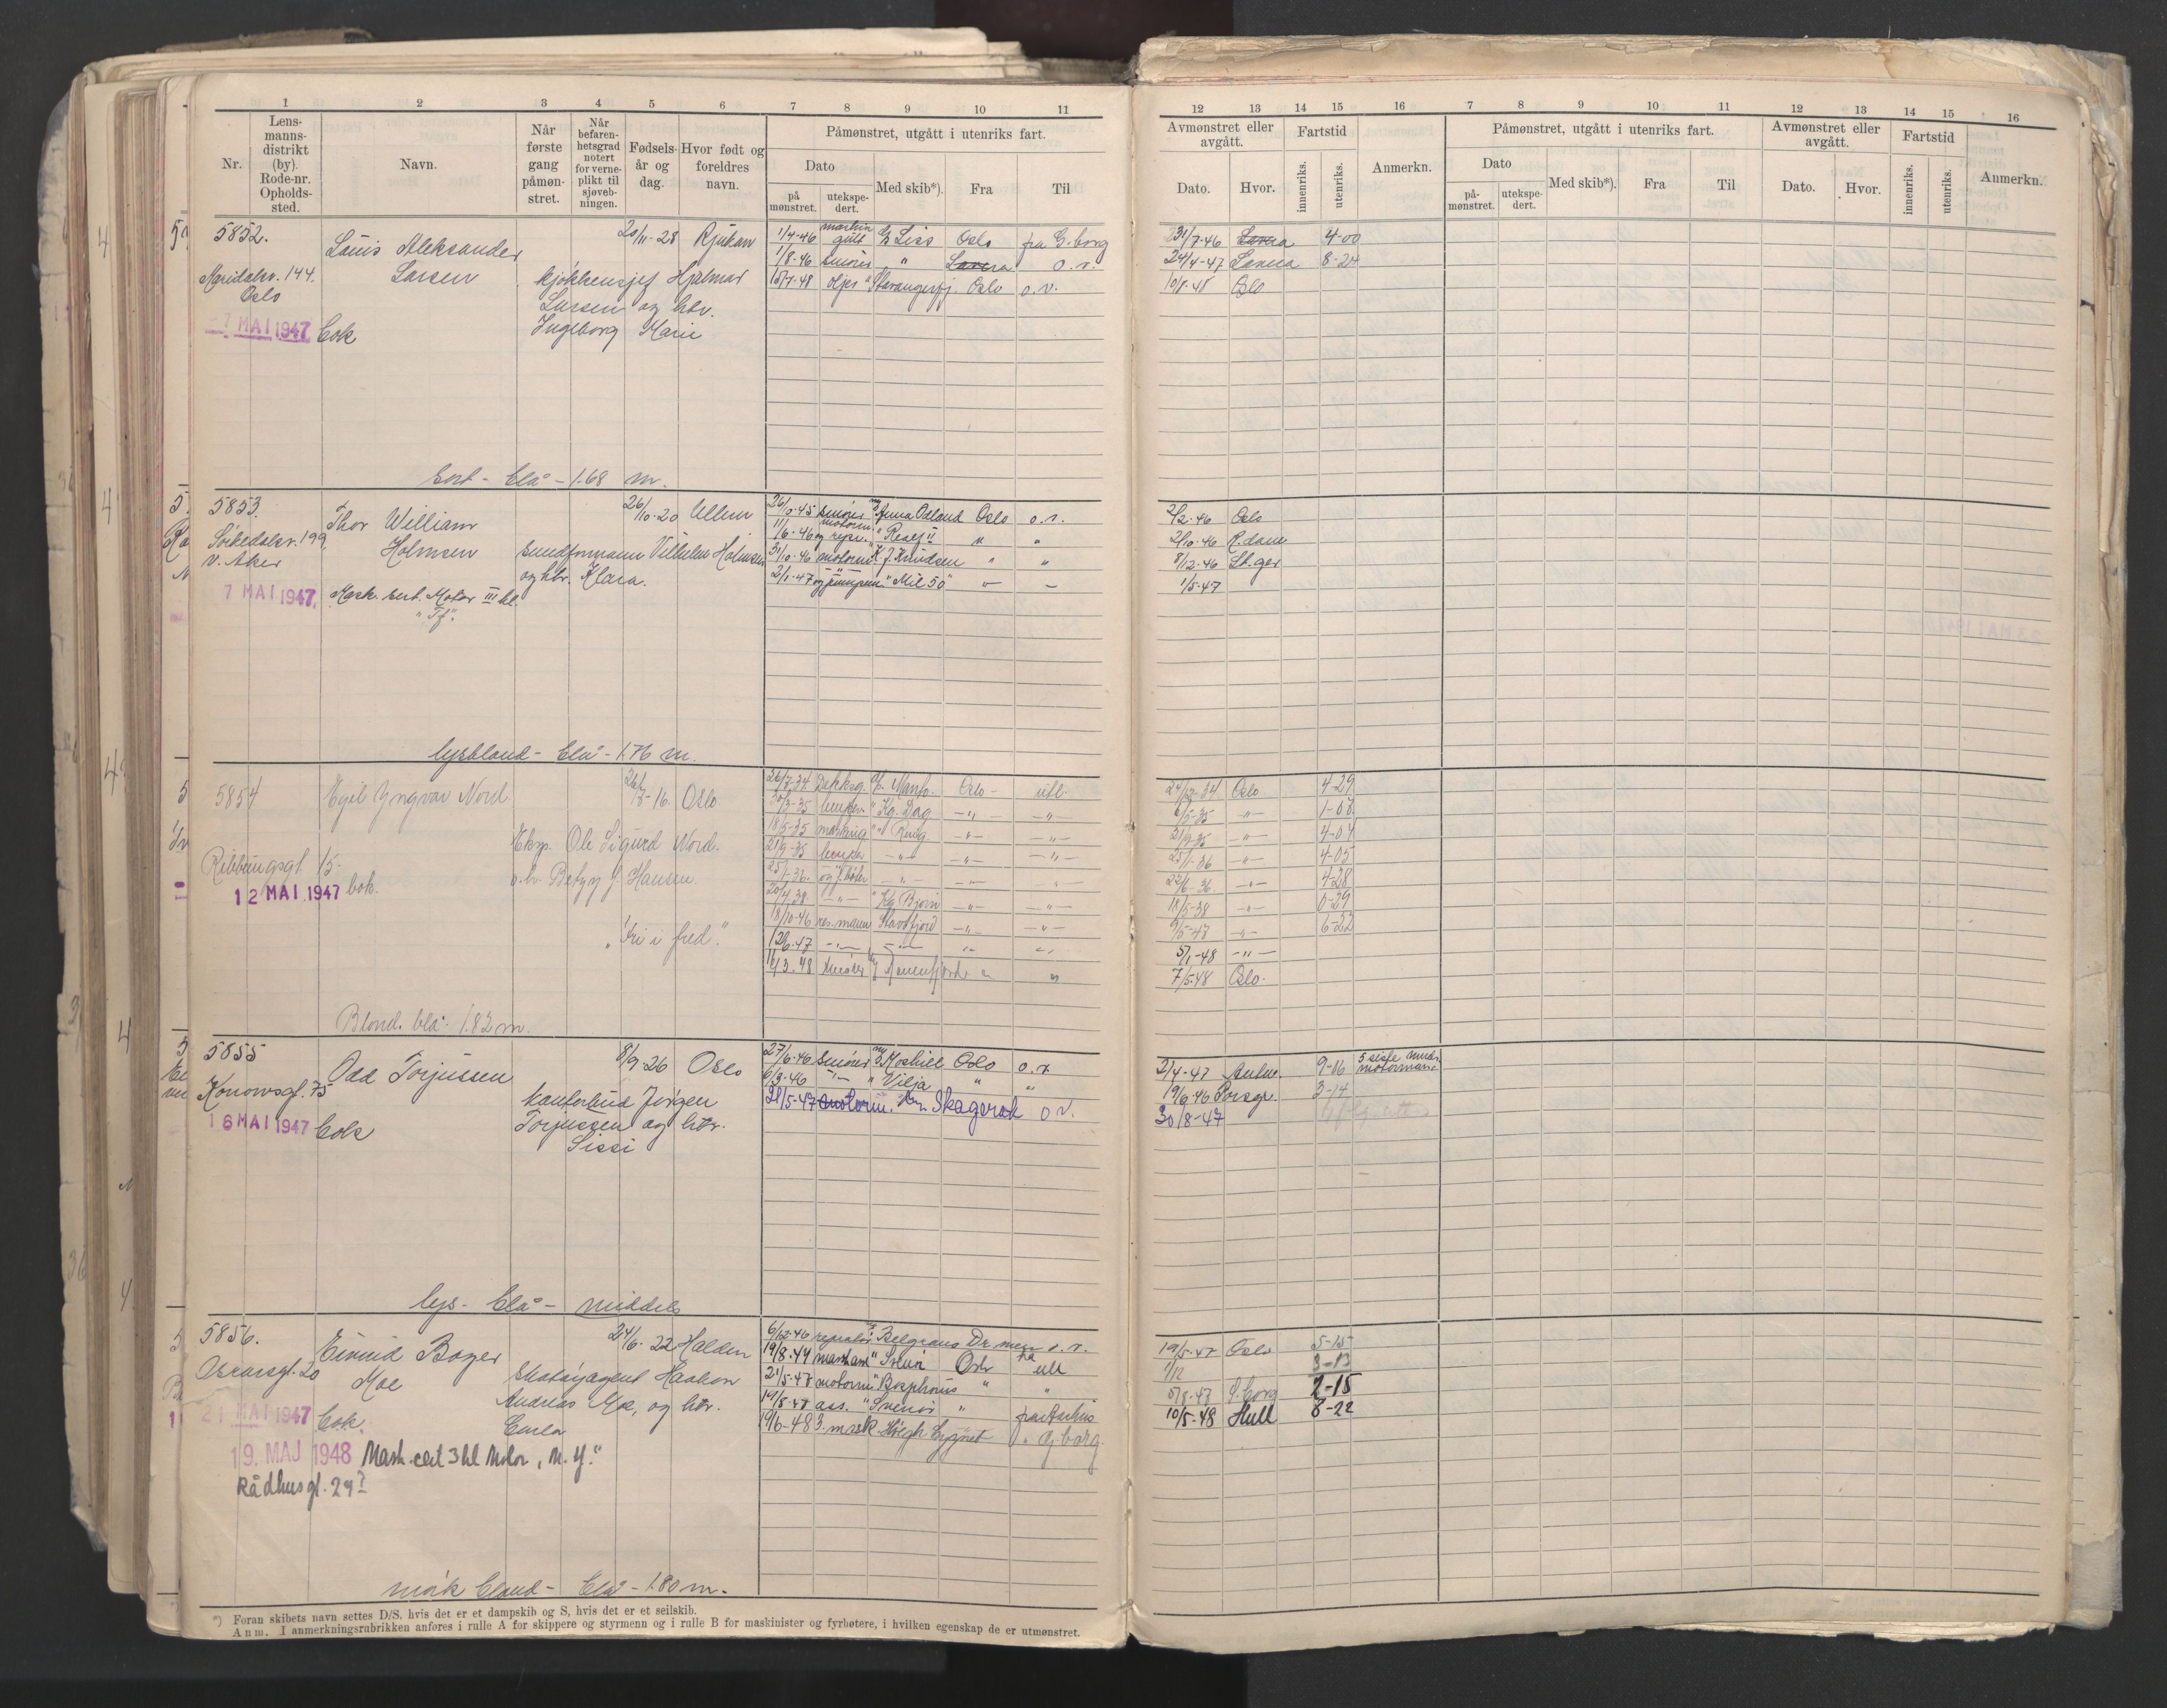 1 2 3 4 5 6 7 8 9 10 11
Nr.
Lens-
manns-
distrikt
(by).
Rode-nr.
Opholds-
sted.
Navn.
Når
første
gang
påmøn-
stret.
Når
befaren-
hetsgrad
notert
for verne-
plikt til
sjøveb-
ningen.
Fødsels-
år og
dag.
Hvor født og
foreldres
navn.
Påmønstret, utgått i utenriks fart.
Dato
på
mønstret.
utekspe-
dert.
Med skib*).
Fra
Til
12 13 14 15 16 7 8 9 10 11 12 13 14 15 16
Avmønstret eller
avgått.
Dato. Hvor.
Fartstid
innenriks. utenriks.
Anmerkn.
Påmønstret, utgått i utenriks fart.
Dato
på-
mønstret.
utekspe-
dert.
Med skib*). Fra Til
Avmønstret eller
avgått.
Dato. Hvor.
Fartstid
innenriks. utenriks.
Anmerkn.
5852.
Louis Aleksander
Larsen
20/11-28 Rjukan
Maridalsv. 144.
Oslo
kjøkkensjef Hjalmar
Larsen og htr.
Ingeborg Marie
-7 MAI 1947
1/4-46 Liss Oslo fra G.borg
1/8-46 smører " o.v.
15/7-48 oljer " Stavangerfj. Oslo o.v.
31/7-46 4-00
24/4-47 8-24
10/8-48 Oslo
sort - blå - 1.68 m.
5853.
Thor William
Holmsen
26/10-20 Ullern
Sørkedalsv. 199,
V. Aker
Vilhelm Holmsen
og htr. Klara.
7 MAI 1947,
Mask. sert. Motor III kl.
26/10-45 smører Anna Odland Oslo o.v.
11/6-46 motorm. og repr. " " "
31/10-46 motorm. K. J. Knudsen " "
2/1-47 og pumpem. " Mil 50"
2/2-46 Oslo
2/10-46 R.dam
8/12-46 St.ger
1/5-47
lysblond - blå - 1.76 m.
5854
Egil Yngvar Nord.
16. Oslo
Eksp. Ole Sigurd Nord.
Hansen
15.
12 MAI 1947
26/7-34 Dekksg. Oslo - utl.
30/3-35 lemper " Kg. Dag -"- -"-
18/5-35 " Ring -"- -"-
21/9-35 lemper -"- -"- -"-
25/1-36 -"- -"-
20/4-38 -"- " Kg. Bjørn -"- -"-
18/10-46 res. mann Stavsfjord -"- -"-
12/6-47 -"- -"- " "
16/3-48 smører Ranenfjord " "
24/12-34 Oslo 4-29
9/5-35 -"- 1-07
21/9-35 -"- 4-04
25/1-36 -"- 4-05
22/6-36 -"- 4-28
18/5-38 -"- 0-29
9/5-47 -"- 6-22
5/1-48 -"-
7/5-48 Oslo.
"Fri i fred."
Blond. blå. 1.82 m.
5855
Odd Torjussen
8/9-26 Oslo
Konowsgt. 75
kontorbud Jørgen
Torjussen og htr.
Sissi
16 MAI 1947
27/6-46 smører Moshill Oslo o.v.
6/3-46 -"- " Vilja " "
28/5-47 motorm. Skagerak o v.
2/4-47 9-06 5 siste mndr. motormann
19/6-46 Porsgr. 3-14
30/8-47
lys - blå - middels
5856.
Eivind Boger
Moe
24/6-22 Halden
Oscarsgt. 20
Haakon
Andreas Moe, og htr.
Carla
21 MAI 1947
19. MAJ 1948 Mask.cert 3 kl Motor, "M.Y."
Rådhusgt. 29?
6/12-46 reparatør Belgrano Dr.men o.v.
19/8-44 Oslo utl
21/5-47 motorm " Bosphorus " "
14/8-47 ass. " fra Aarhus
19/6-48 3. mask. Høegh " G.borg.
19/5-47 Oslo 5-15
1/12 3-13
5/8-47 G.borg 2-15
10/5-48 Hull 8-22
mørk blond - blå - 1.80 m.
*) Foran skibets navn settes D/S. hvis det er et dampskib og S, hvis det er et seilskib.
Anm. I anmerkningsrubrikken anføres i rulle A for skippere og styrmenn og i rulle B for maskinister og fyrbøtere, i hvilken egenskap de er utmønstret.